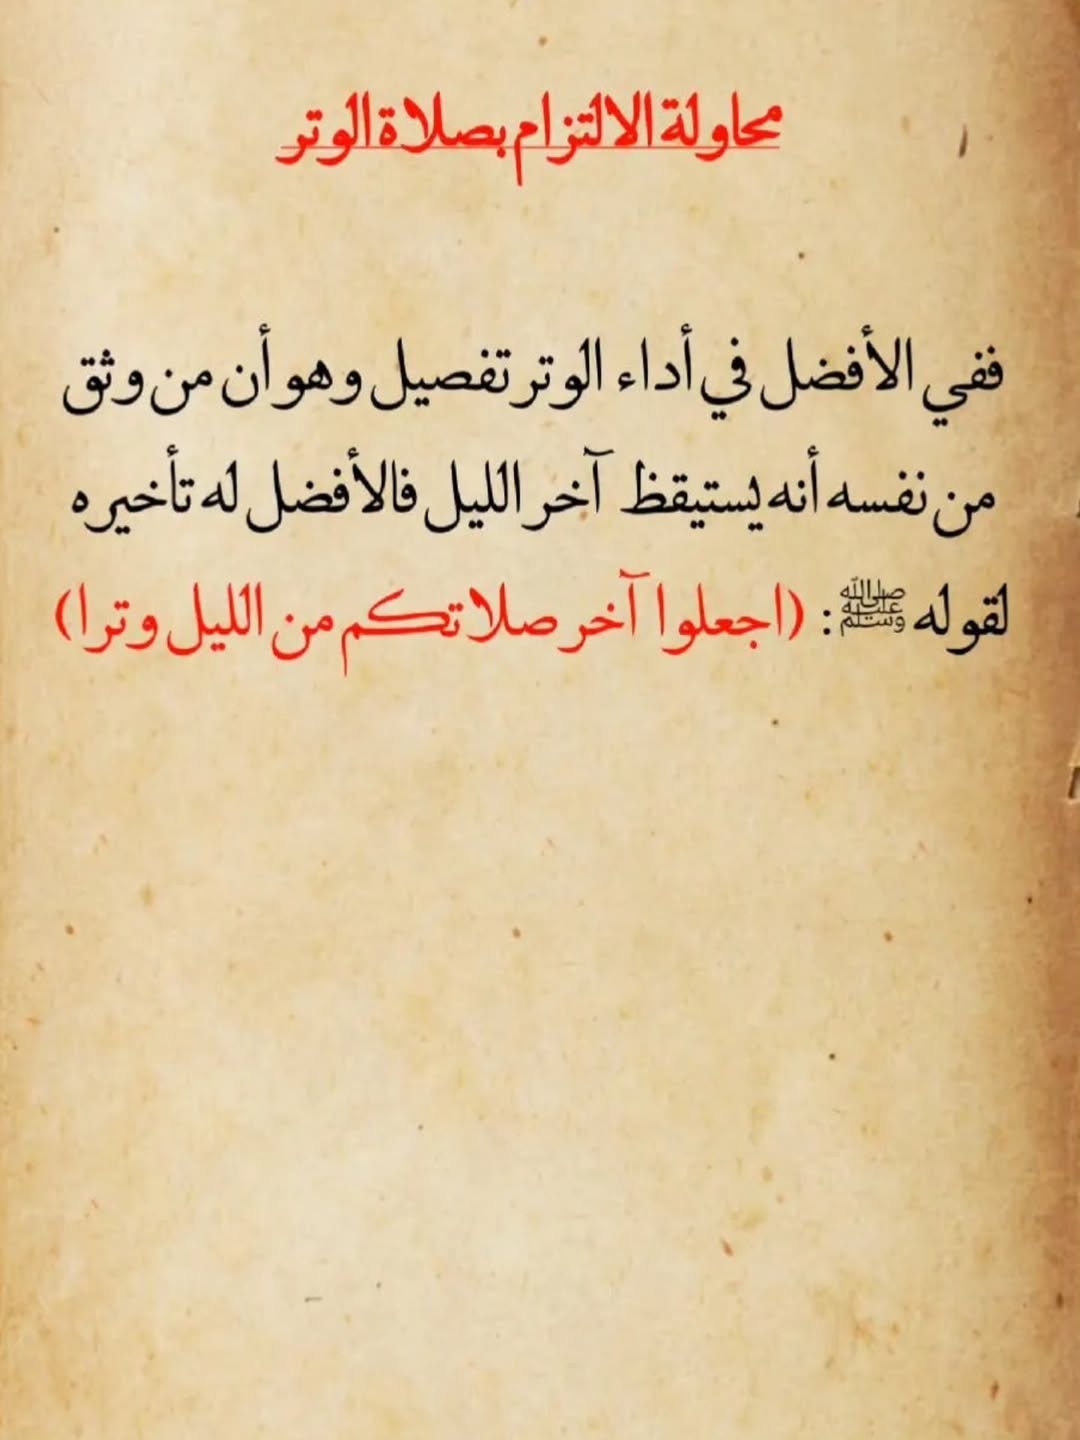 محاولة الالتزام بصلاة الوتر
ففي الأفضل في أداء الوتر تفصيل وهو أن من وثق
من نفسه أنه يستيقظ آخر الليل فالأفضل له تأخيره
لقوله ﷺ: (اجعلوا آخر صلاتكم من الليل وترا)